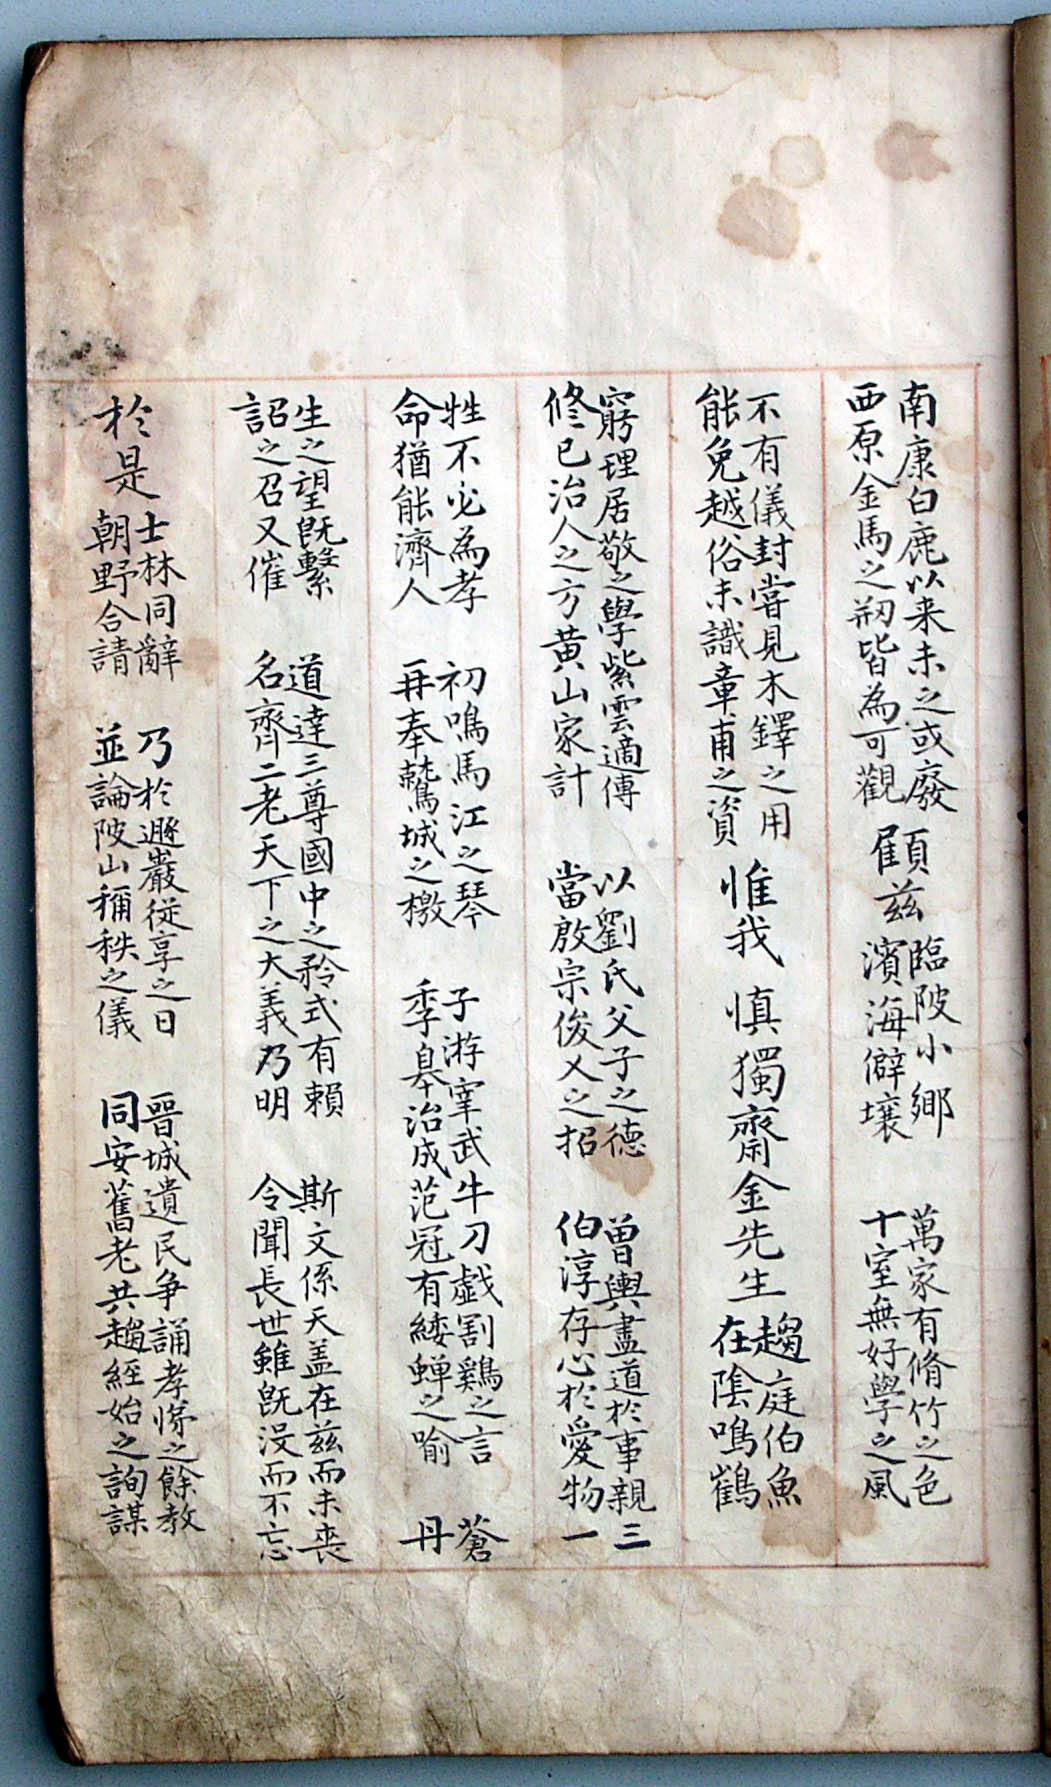 南康白鹿以来未之或廢
西原金馬之刱皆為可觀
顧玆
臨陂小鄉
濱海僻壤
萬家有脩竹之色
十室無好學之風
不有儀封嘗見木鐸之用
能免越俗未識章甫之資
惟我
慎獨齋金先生
趨庭伯魚
在陰鳴鶴
窮理居敬之學紫雲適傳
修已治人之方黄山家計
以劉氏父子之德
當啟宗俊乂之招
曽輿盡道於事親三
伯淳存心於愛物一
牲不必為孝
命猶能濟人
初鳴馬江之琴
再奉鷲城之檄
子游宰武牛刀戱割鷄之言
季臯治成范冠有緌蟬之喻
蒼
丹
生之望旣繫
詔之召又催
道達三尊國中之矜式有賴
名齊二老天下之大義乃明
斯文係天盖在玆而未喪
令聞長世雖旣没而不忘
於是
士林同辭
朝野合請
乃於遯巖從享之日
並論陂山稱秩之儀
晉城遺民争誦孝悌之餘教
同安舊老共趨經始之詢謀